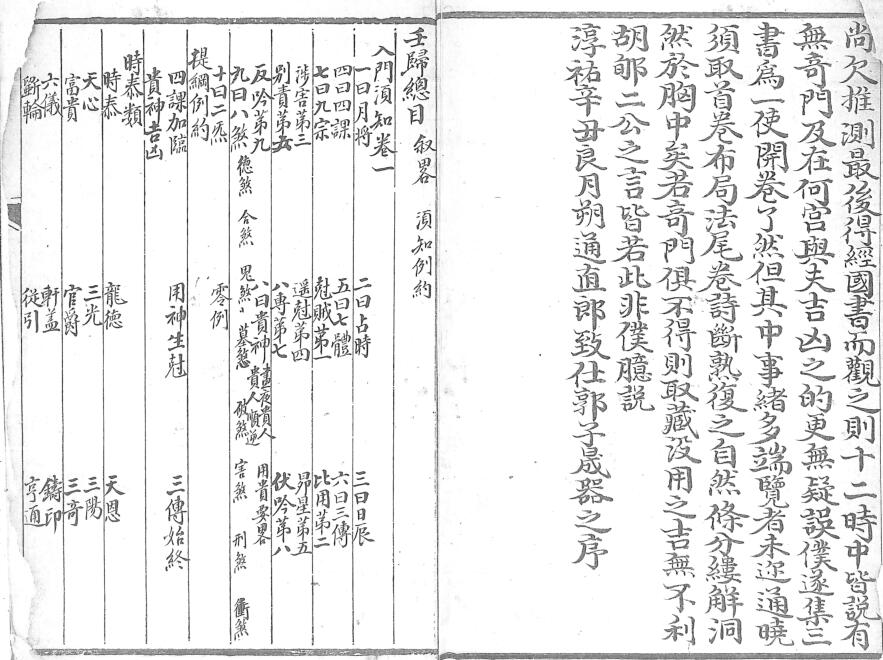 尚欠推測最後得經國書而觀之則十二時中皆説有
無奇門及在何宮與夫吉凶之的更無疑誤僕遂集三
書爲一使開卷了然但其中事緒多端覽者未迩通曉
須取首卷布局法尾卷詩斷熟復之自然條分縷解洞
然於胸中矣若奇門俱不得則取藏没用之吉無不利
胡鄉二公之言皆若此非僕臆説
淳祐辛丑良月朔通直郎致仕郭子晟器之序
壬歸總目 叙畧 湏知例約
入門湏知卷一
一曰月将 二曰占時 三曰日辰
四曰四課 五曰七體 六曰三傳
七曰九宗 尅賊第一 比用第二
涉害第三 遥尅第四 昴星第五
别責第六 八專第七 伏吟第八
反吟第九 八曰貴神 晝夜貴人 貴人順逆 用貴要畧
九曰八煞 德煞 合煞 鬼煞 墓煞 破煞 害煞 刑煞 衝煞
十曰二𤋮 零例
提綱例約
四課加臨 用神生尅 三傳始終
貴神吉凶
時泰類
時泰 龍德 天恩
天心 三光 三陽
富貴 官爵 三奇
六儀 軒盖 鑄印
斵輪 從引 亨通